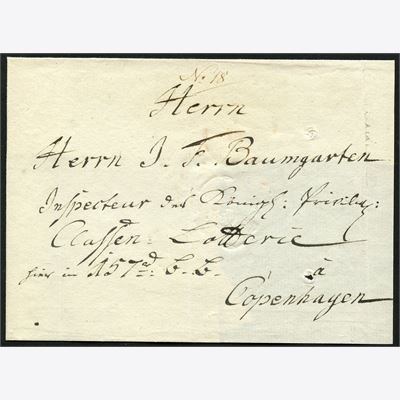 No. 18
Herrn
Herrn J. F. Baumgarten
Inspecteur der Königl: Privileg:
Classen: Lotterie
hier in 157 rd: b. b. à
Copenhagen